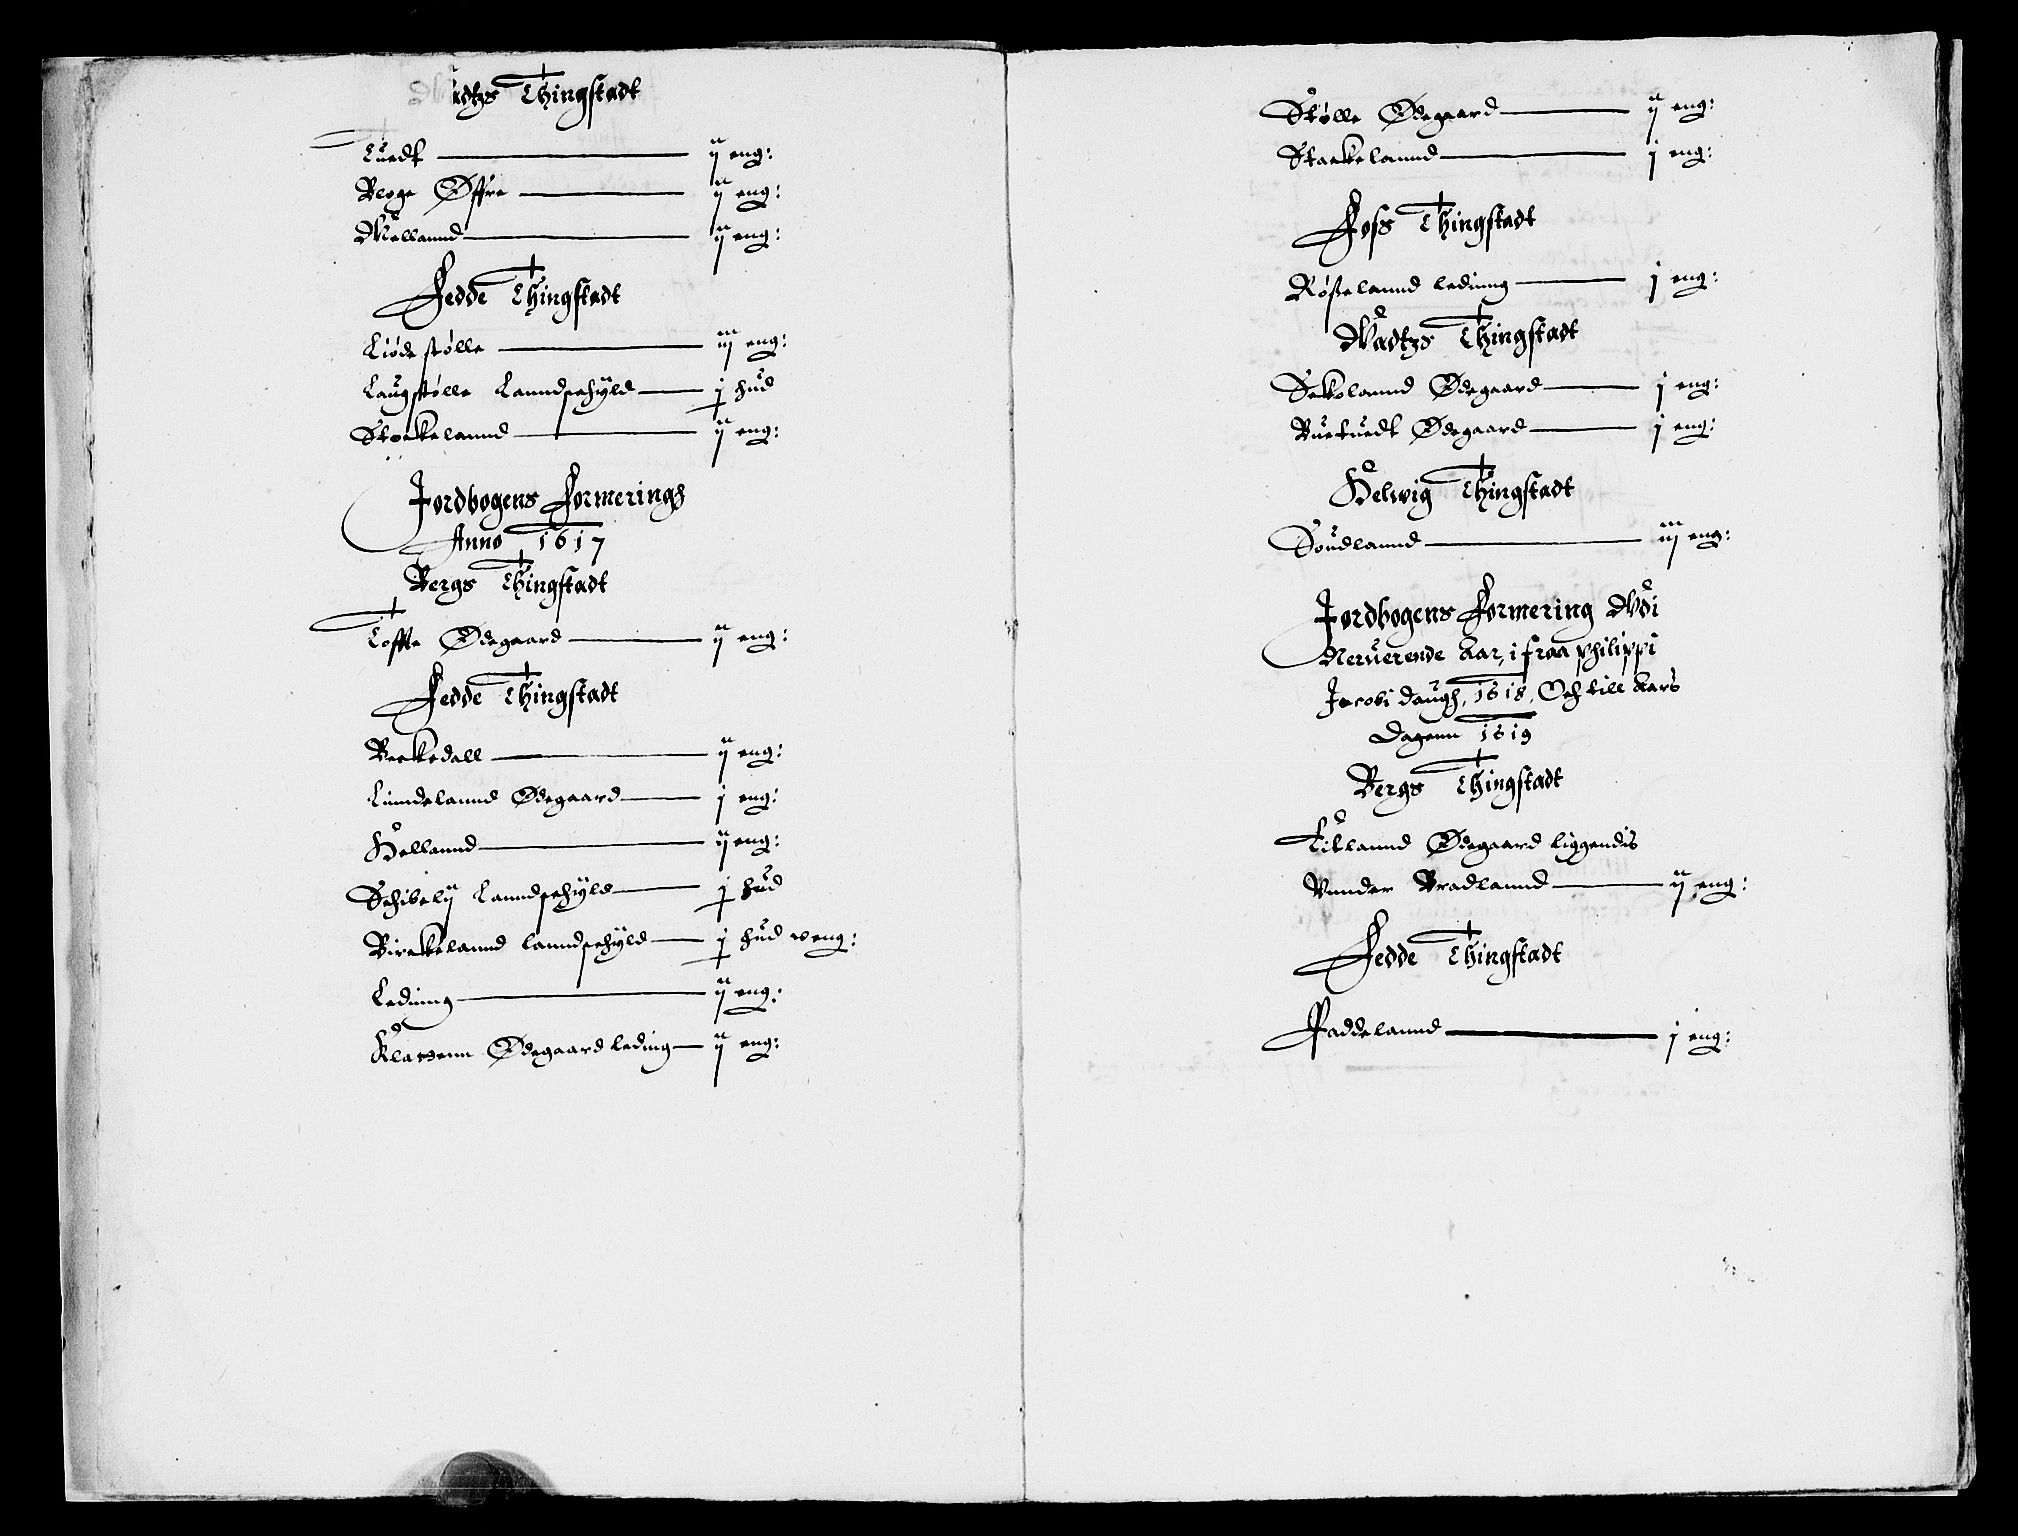 Thingstadt
Tuedt ij eng:
Bege Øffre ij eng:
Mellannd ij eng:
Fedde Thingstadt
Liøde støllе iij eng:
Laugstølle Lanndschÿld j hud
Stockelannd ij eng:
Jordbogens Formeringh
Anno 1617
Bergs Thingstadt
Tofftte Ødegaard ij eng:
Fedde Thingstadt
Beckedall ij eng:
Lunndelannd Ødegaard j eng:
Hellannd ij eng:
Schibelij Lanndschÿld j hud
Birckelannd lanndschÿld j hud v eng:
Leding ij eng:
Ødegaard leding ij eng:
Stølle Ødegaard ij eng:
Stackelannd j eng:
Foss Thingstadt
Røsselannd leding j eng:
Wadtzs Thingstadt
Sckolannd Ødegaard j eng:
Ødegaard j eng:
Helwig Thingstadt
Soudlannd iij eng:
Jordbogens Formering Wdi
Neruerende Aar, ifraa Philippi
Jacobi daugh, 1618, Och till Aars
Dagenn 1619
Bergs Thingstadt
Titlannd Ødegaard liggendis
Vnnder Bradlannd ij eng:
Fedde Thingstadt
Faddelannd j eng: